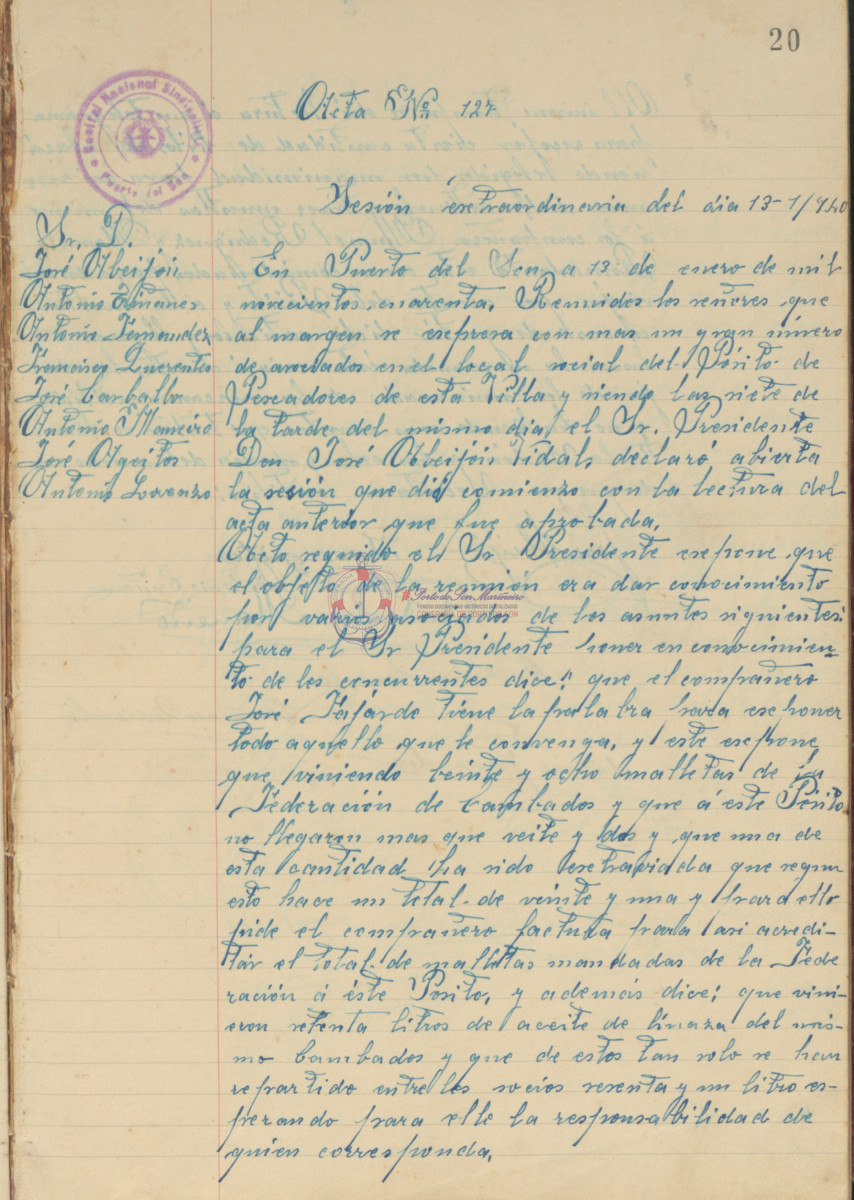 20
Central Nacional Sindicalista
Puerto del Son
Acta Nº 127
Sesión esetraordinaria del dia 13-1/940
Sr. D.
José Abeijón
Antonio
Antonio Fernandez
Francisco
José Carballo
Antonio Maneiro
José Ageitos
Antonio Lorenzo
En Puerto del Son a 13 de enero de mil
novecientos cuarenta. Reunidos los señores que
al margen se esepresa con mas un gran número
de asociados en el local social del Pósito de
Pescadores de esta Villa y siendo las siete de
la tarde del mismo dia el Sr. Presidente
Don José Abeijón Vidal, declaró abierta
la sesión que dió comienzo con la lectura del
acta anterior que fue aprobada.
Acto seguido el Sr Presidente esepone que
el objeto de la reunión era dar conocimiento
por varios asociados de los asuntos siguientes:
para el Sr Presidente poner en conocimien-
to de los concurrentes dice: que el compañero
José Fajárdo tiene la palabra para eseponer
todo aquello que le convenga, y este esepone
que viniendo beinte y ocho malletas de la
Federación de Cambados y que á este Pósito
no llegaron mas que veite y dos y que una de
esta cantidad ha sido esetraviada que segun
esto hace un total de veinte y una y para ello
pide el compañero factura para asi acredi-
tar el total de malletas mandadas de la Fede
ración á éste Posito, y además dice: que vini-
eron setenta litros de aceite de linaza del mis-
mo Cambados y que de estos tan solo se han
repartido entre los socios sesenta y un litro es-
perando para ello la responsabilidad de
quien corresponda.
Porto do Son Mariñeiro